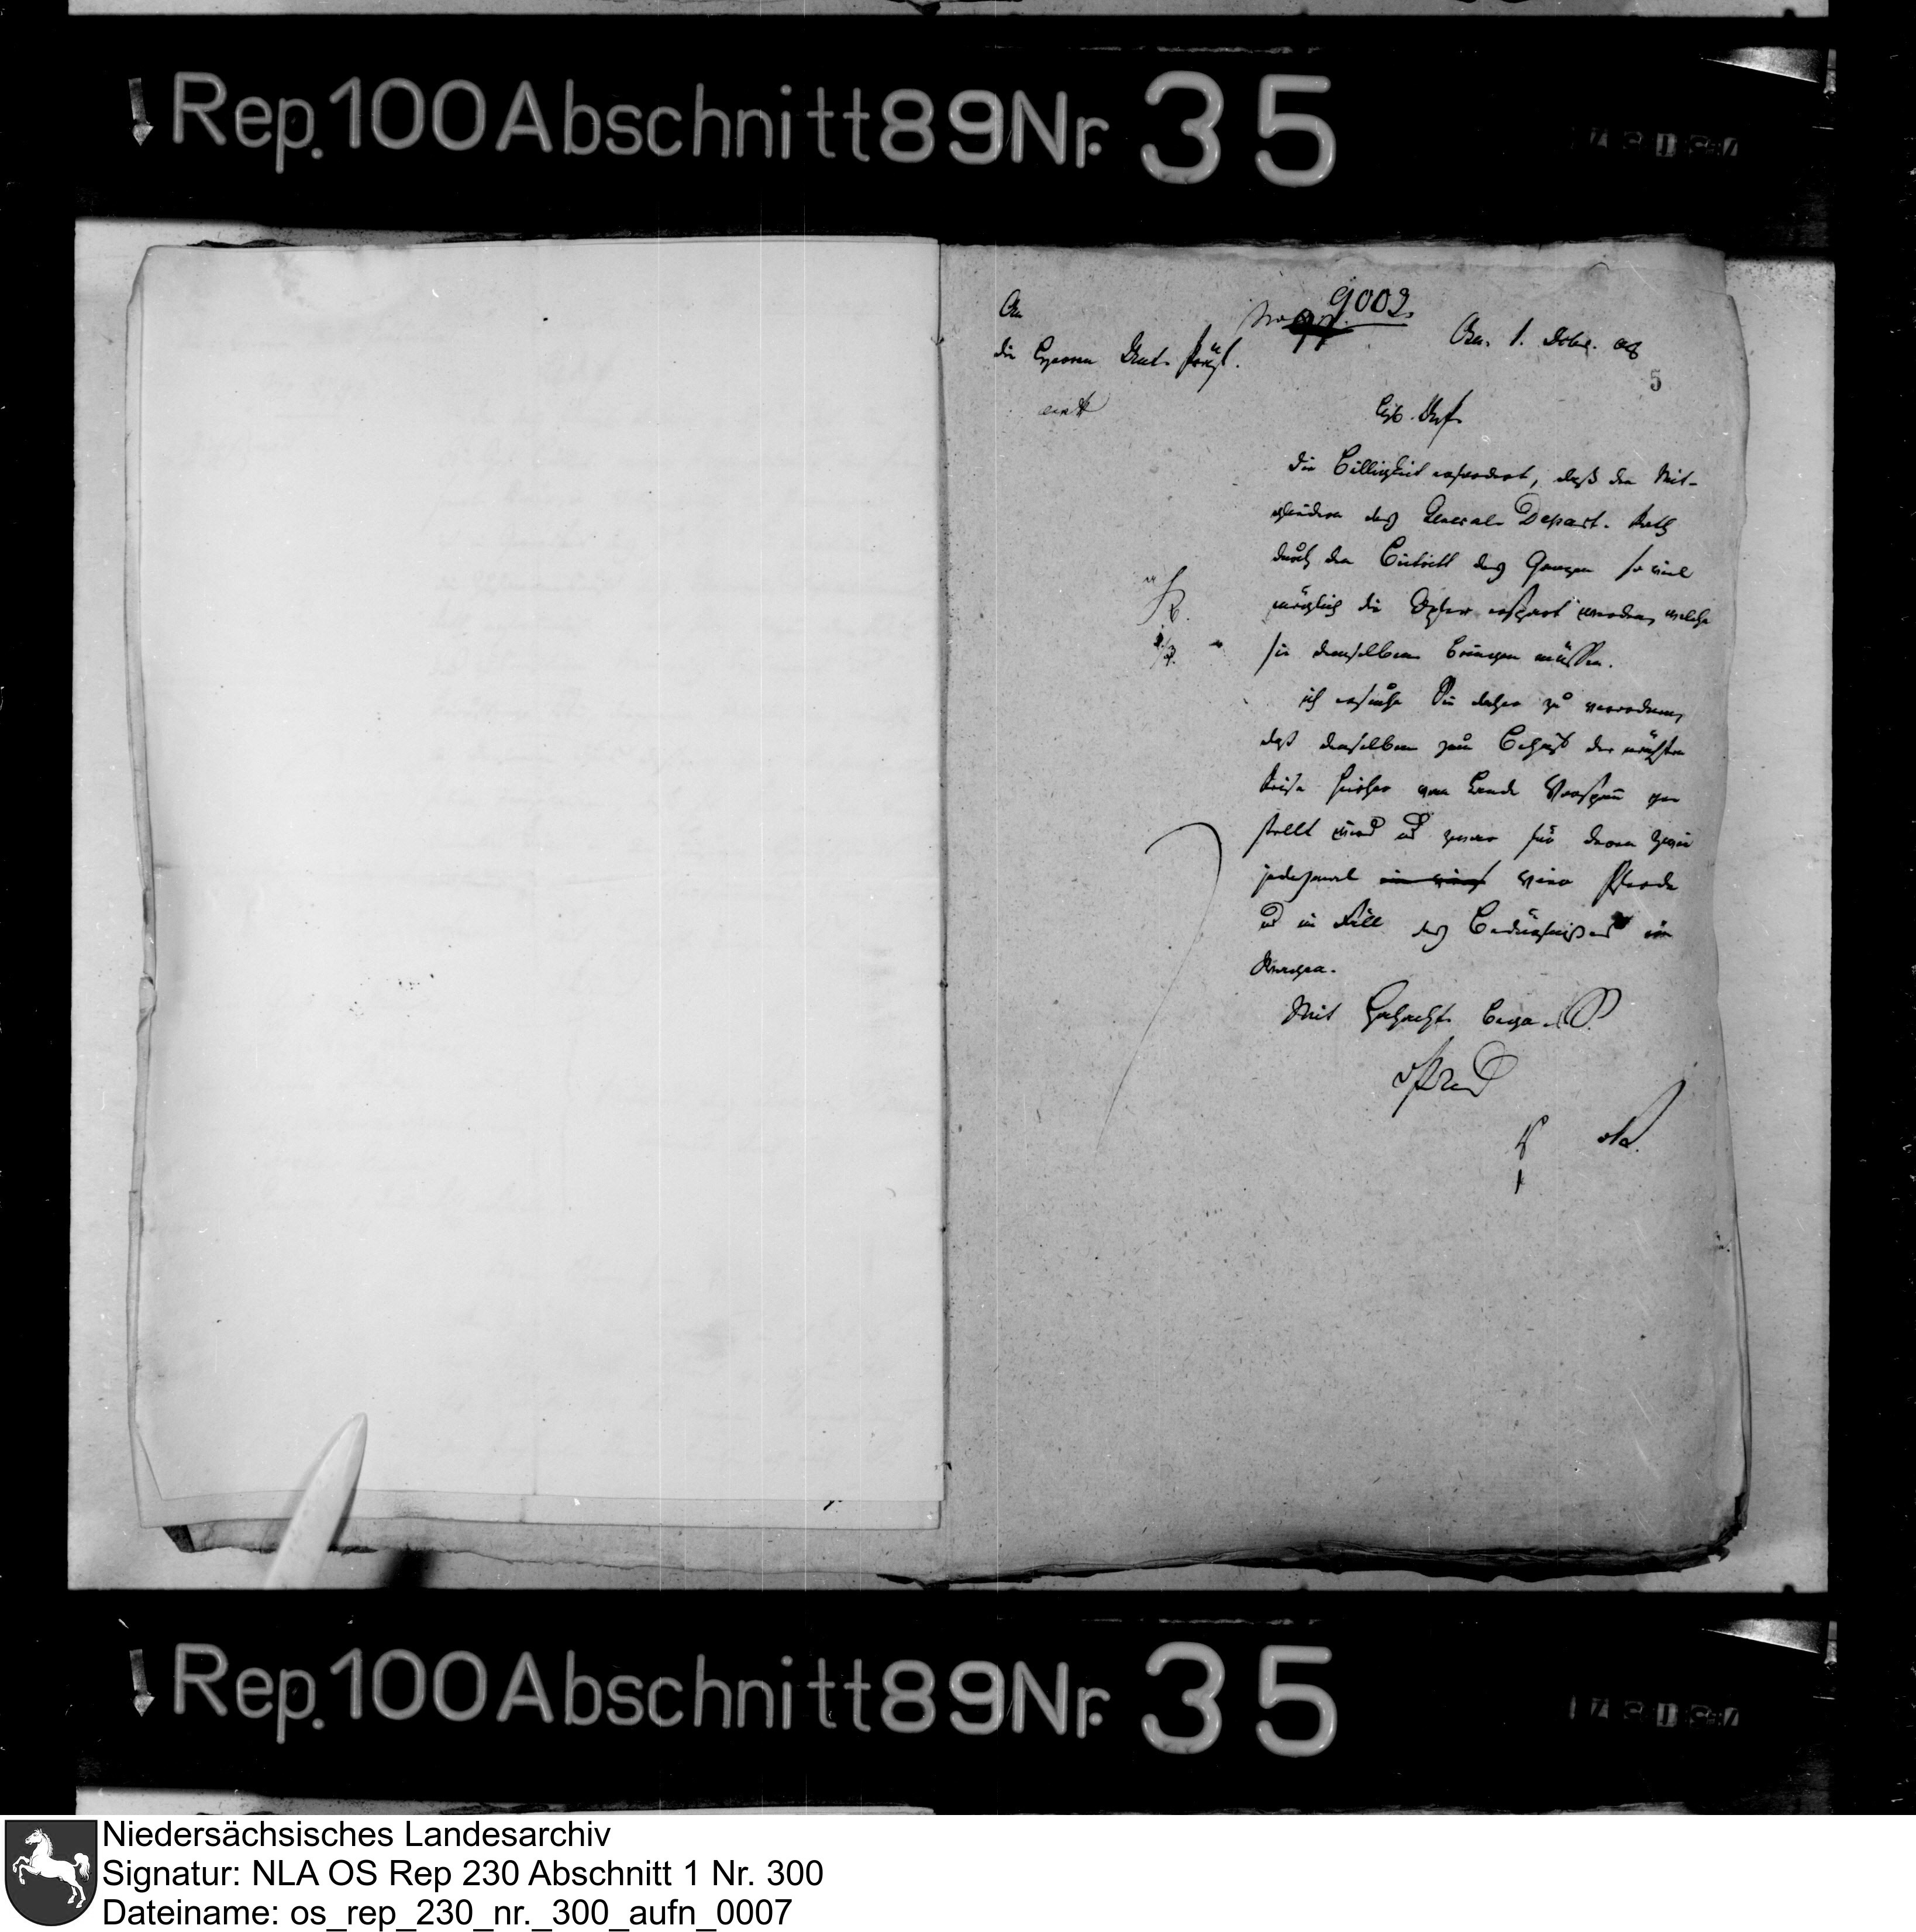 Rep. 100 Abschnitt 89 Nr. 35
9002.
An
die Herren Unt. Präf.
Osn. 1. Dcbr. 08
5
die Billigkeit erfordert, daß den Mit-
gliedern des General Depart. Raths
durch den Beitritt des Ganzen so viel
möglich die Opfer erspart werden, welche
sie demselben bringen müssen.
ich ersuche Sie daher zu verordnen,
daß denselben zum Behuf der nächsten
Reise hieher vom Lande Vorspann ge
stellt wird und zwar für deren zwei
jedesmal vier Pferde
und im Fall des Bedürfnisses ein
Wagen.
Mit Hochacht.
Rep. 100 Abschnitt 89 Nr. 35
Niedersächsisches Landesarchiv
Signatur: NLA OS Rep 230 Abschnitt 1 Nr. 300
Dateiname: os_rep_230_nr._300_aufn_0007